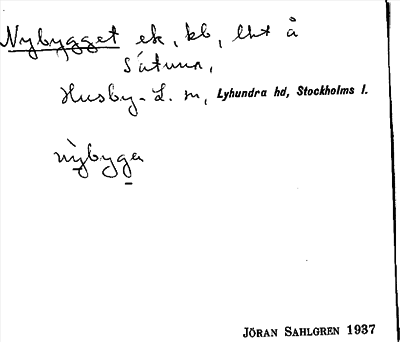 Nybygget ek, kb, lht å
Sätuna,
Husby-L. sn, Lyhundra hd, Stockholms l.
nỳbyga
JÖRAN SAHLGREN 1937